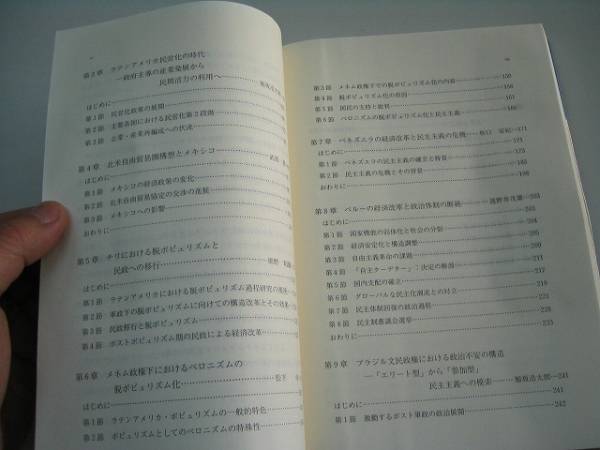 第3章 ラテンアメリカ民営化の時代
―政府主導の産業発展から
民間活力の利用へ―
はじめに
第1節 民営化政策の展開
第2節 主要各国における民営化第2段階
第3節 企業・産業再編成への伏流
第4章 北米自由貿易圏構想とメキシコ
はじめに
第1節 メキシコの経済政策の変化
第2節 北米自由貿易協定の交渉の進展
第3節 メキシコへの影響
おわりに
第5章 チリにおける脱ポピュリズムと
民政への移行
はじめに
第1節 ラテンアメリカにおける脱ポピュリズム過程研究の
第2節 軍政下の脱ポピュリズムに向けての構造改革とその効果
第3節 民政移行と脱ポピュリズム
第4節 ポストポピュリズム期の民政による経済改革
第6章 メネム政権下におけるペロニズムの
脱ポピュリズム化 松下
はじめに
第1節 ラテンアメリカ・ポピュリズムの一般的特色
第2節 ポピュリズムとしてのペロニズムの特殊性
第3節 メネム政権下での脱ポピュリズム化の内容 150
第4節 脱ポピュリズム化の要因
第5節 国民の支持と批判
第6節 ペロニズムの脱ポピュリズム化と民主主義
第7章 ベネズエラの経済改革と民主主義の危機 171
はじめに 171
第1節 ベネズエラの民主主義の確立と特質
第2節 民主主義の危機とその背景
おわりに
第8章 ペルーの経済改革と政治体制の断絶 遅野井茂雄 203
はじめに
第1節 国家機能の弱体化と社会の分裂
第2節 経済安定化と構造調整
第3節 自由主義革命の課題
第4節 「自主クーデター」：決定の断面
第5節 国内支配の確立
第6節 グローバルな民主化潮流との対立
第7節 民主体制回復の政治過程
第8節 民主制憲議会選挙
おわりに
第9章 ブラジル文民政権における政治不安の構造
―「エリート型」から「参加型」
民主主義への模索― 堀坂浩太郎 241
はじめに 241
第1節 激動するポスト軍政の政治展開 242